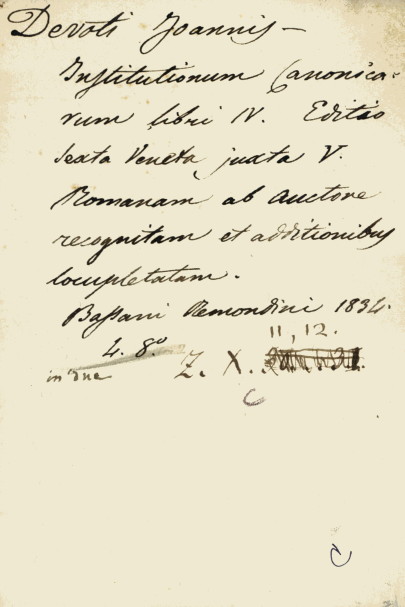 Devoti Joannis –
Institutionum Canonica-
rum libri IV. Editio
sexta Veneta juxta V.
Romanam ab Auctore
recognitam et additionibus
locupletatam.
Baſsani Remondini 1834.
11, 12.
4. 8.º Z. X.
in due
C
C